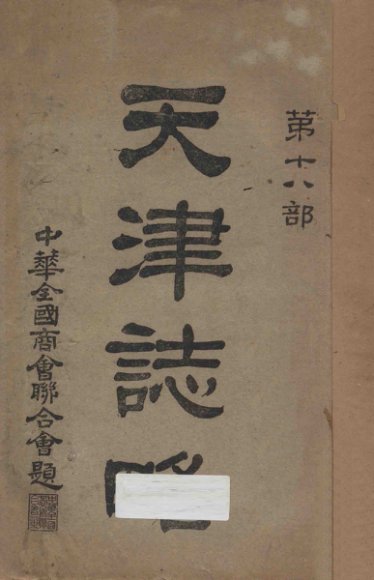 苐十八部
天津誌略
中華全國商會聯合會題